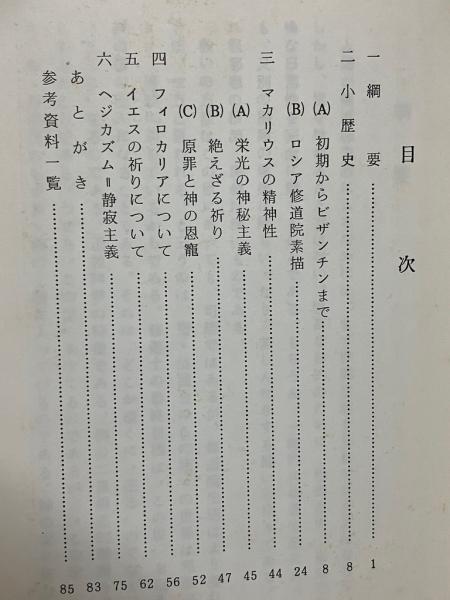 目次
一 綱要 1
二 小歴史 8
(A) 初期からビザンチンまで 8
(B) ロシア修道院素描 24
三 マカリウスの精神性 44
(A) 栄光の神秘主義 45
(B) 絶えざる祈り 47
(C) 原罪と神の恩寵 52
四 フィロカリアについて 56
五 イエスの祈りについて 62
六 ヘジカズム＝静寂主義 75
あとがき 83
参考資料一覧 85